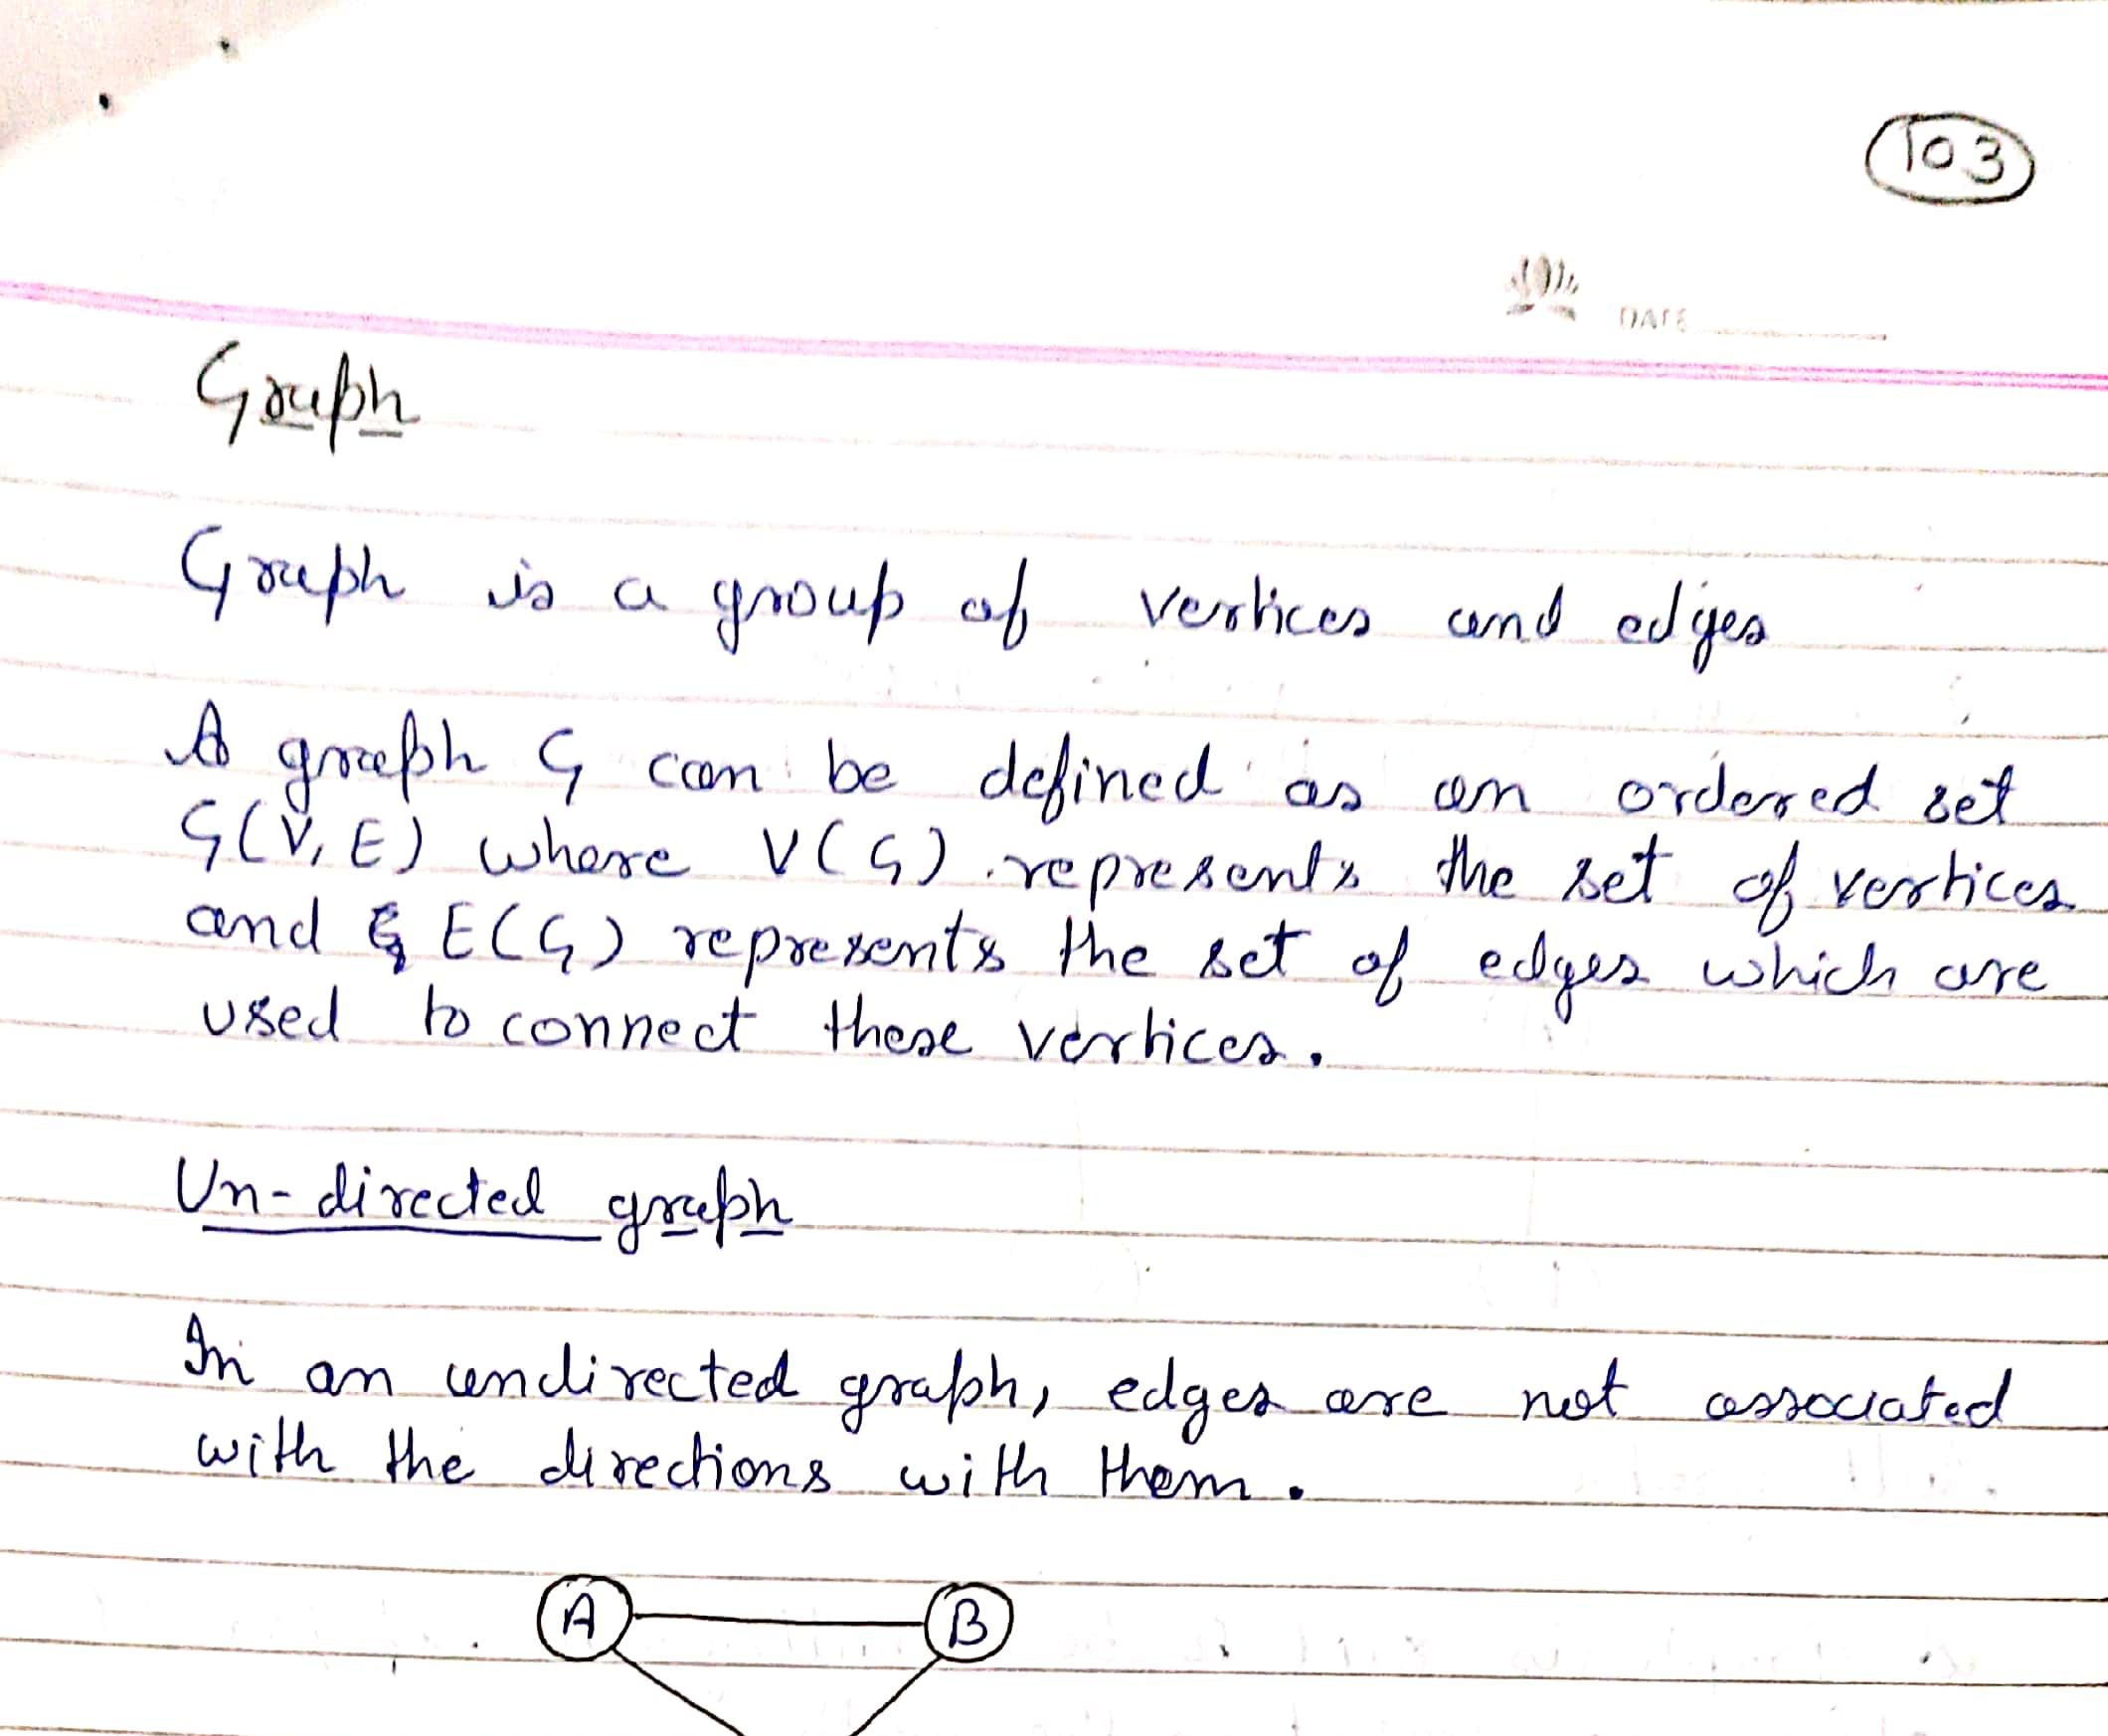 103
DATE
Graph
Graph is a group of vertices and edges
A graph G can be defined as an ordered set
G(V, E) where V(G) represents the set of vertices
and E(G) represents the set of edges which are
used to connect these vertices.
Un-directed graph
In an undirected graph, edges are not associated
with the directions with them.
A B